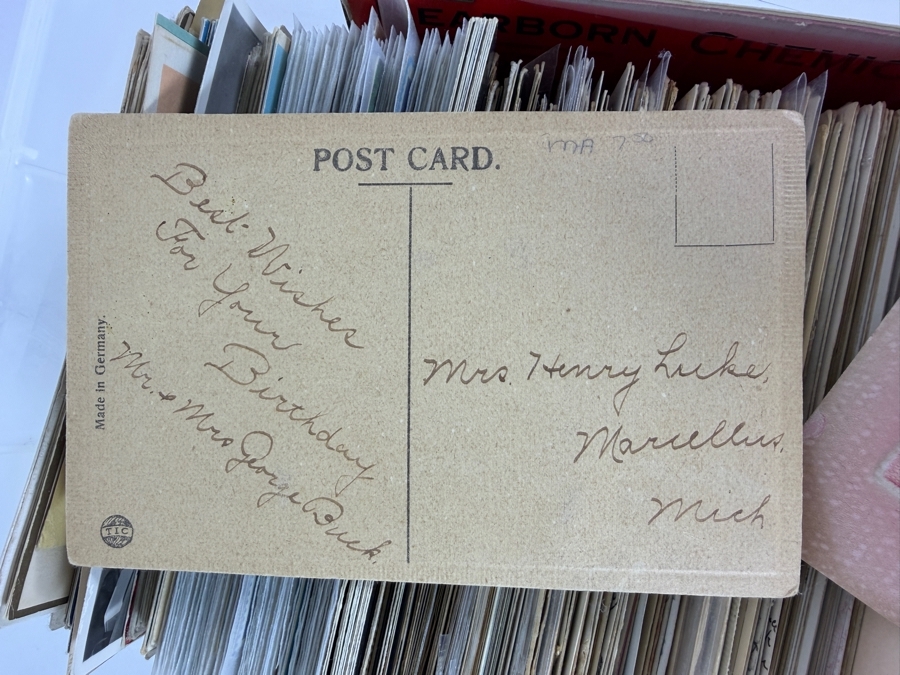 EARBORN CHEMIC
POST CARD.
MA 7⁵⁰
Best Wishes
For Your
Birthday
Mr. & Mrs George Buck.
Made in Germany.
TIC
Mrs. Henry Luke,
Marcellus,
Mich